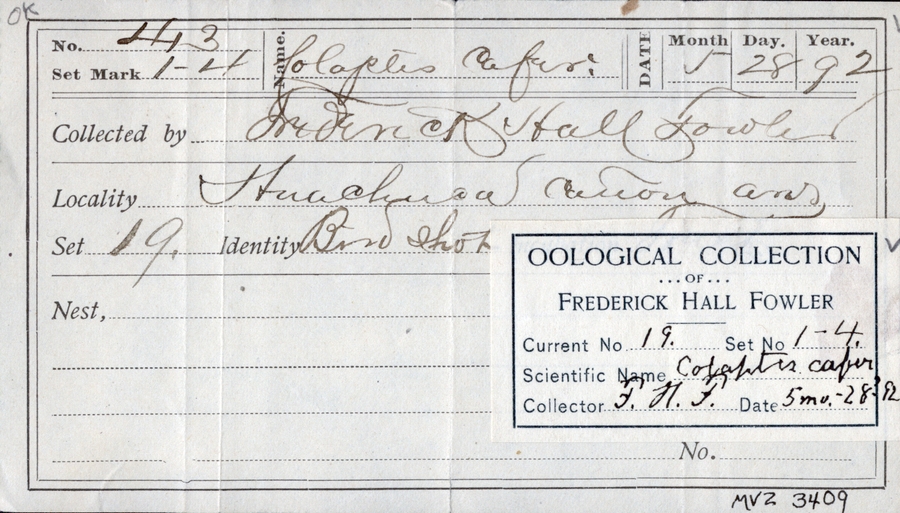 OK
No. 413 Name. Colaptes cafer. DATE Month 5 Day. 28 Year. 92
Set Mark 1-4
Collected by Frederick Hall Fowler
Locality Huachuca Cañon Ariz
Set 19. Identity Bird Shot
Nest,
OOLOGICAL COLLECTION
...OF...
FREDERICK HALL FOWLER
Current No 19. Set No 1-4.
Scientific Name Colaptes cafer
Collector F. H. F. Date 5 mo.-28-92
No.
MVZ 3409